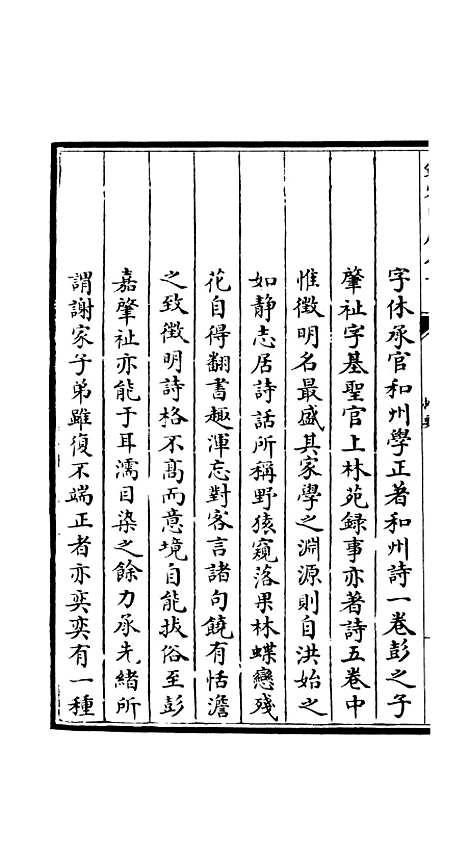 字休承官和州學正著和州詩一卷彭之子
肇祉字基聖官上林苑録事亦著詩五卷中
惟徴明名最盛其家學之淵源則自洪始之
如静志居詩話所稱野猿窺落果林蝶戀殘
花自得翻書趣渾忘對客言諸句饒有恬澹
之致徴明詩格不髙而意境自能拔俗至彭
嘉肇祉亦能于耳濡目染之餘力承先緒所
謂謝家子弟雖復不端正者亦奕奕有一種